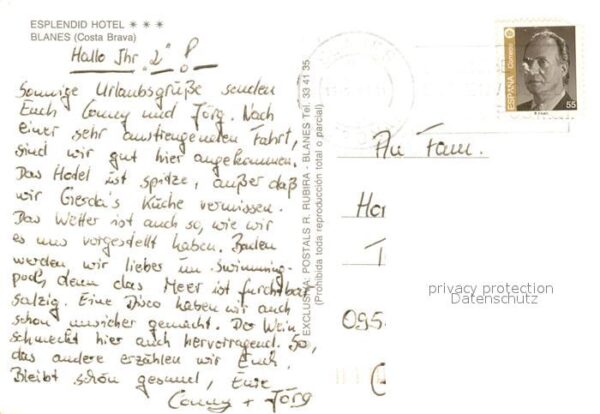 ESPLENDID HOTEL ✶ ✶ ✶
BLANES (Costa Brava)
Hallo Ihr "2" !
Sonnige Urlaubsgrüße senden
Euch Conny und Jörg. Nach
einer sehr anstrengenden Fahrt,
sind wir gut hier angekommen.
Das Hotel ist spitze, außer daß
wir Gerda's Küche vermissen.
Das Wetter ist auch so, wie wir
es uns vorgestellt haben. Baden
werden wir lieber im Swimming-
pool, denn das Meer ist furchtbar
salzig. Eine Disco haben wir auch
schon unsicher gemacht. Der Wein
schmeckt hier auch hervorragend. So,
das andere erzählen wir Euch.
Bleibt schön gesund, Eure
Conny + Jörg
EXCLUSIVA: POSTALS R. RUBIRA - BLANES Tel. 33 41 35
(Prohibida toda reproducción total o parcial)
ESPAÑA
Correos
55
An Fam.
Ha
privacy protection
Datenschutz
095